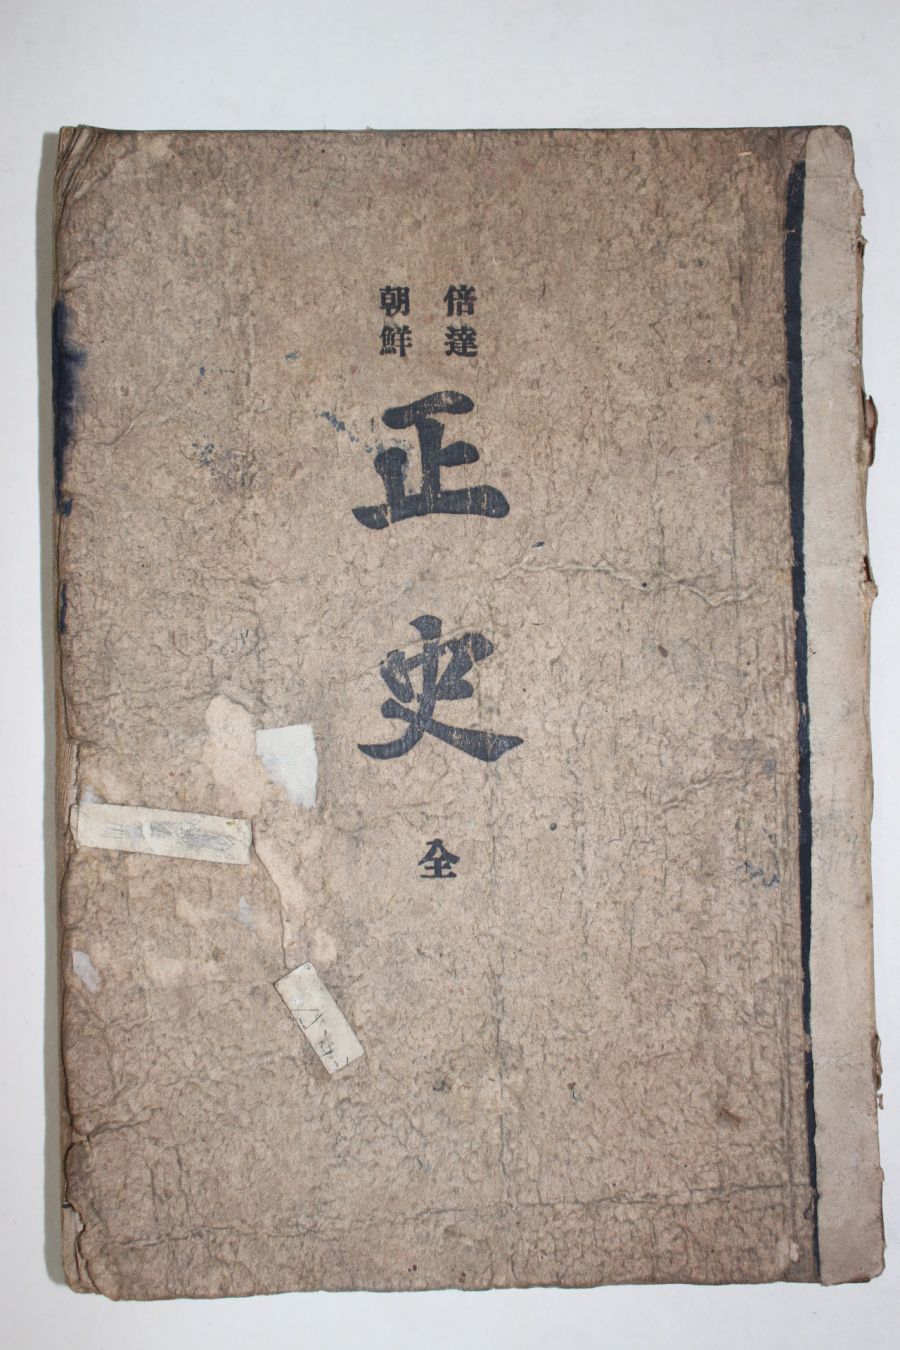 倍達
朝鮮
正史
全